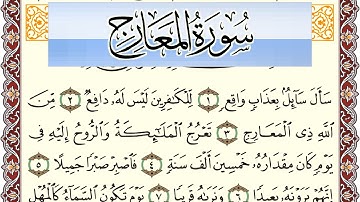 سُورَةُ المَعَارِج
سَأَلَ سَآئِلُۢ بِعَذَابٖ وَاقِعٖ ١ لِّلۡكَٰفِرِينَ لَيۡسَ لَهُۥ دَافِعٞ ٢ مِّنَ
ٱللَّهِ ذِي ٱلۡمَعَارِجِ ٣ تَعۡرُجُ ٱلۡمَلَٰٓئِكَةُ وَٱلرُّوحُ إِلَيۡهِ فِي
يَوۡمٖ كَانَ مِقۡدَارُهُۥ خَمۡسِينَ أَلۡفَ سَنَةٖ ٤ فَٱصۡبِرۡ صَبۡرٗا جَمِيلًا ٥
إِنَّهُمۡ يَرَوۡنَهُۥ بَعِيدٗا ٦ وَنَرَىٰهُ قَرِيبٗا ٧ يَوۡمَ تَكُونُ ٱلسَّمَآءُ كَٱلۡمُهۡلِ